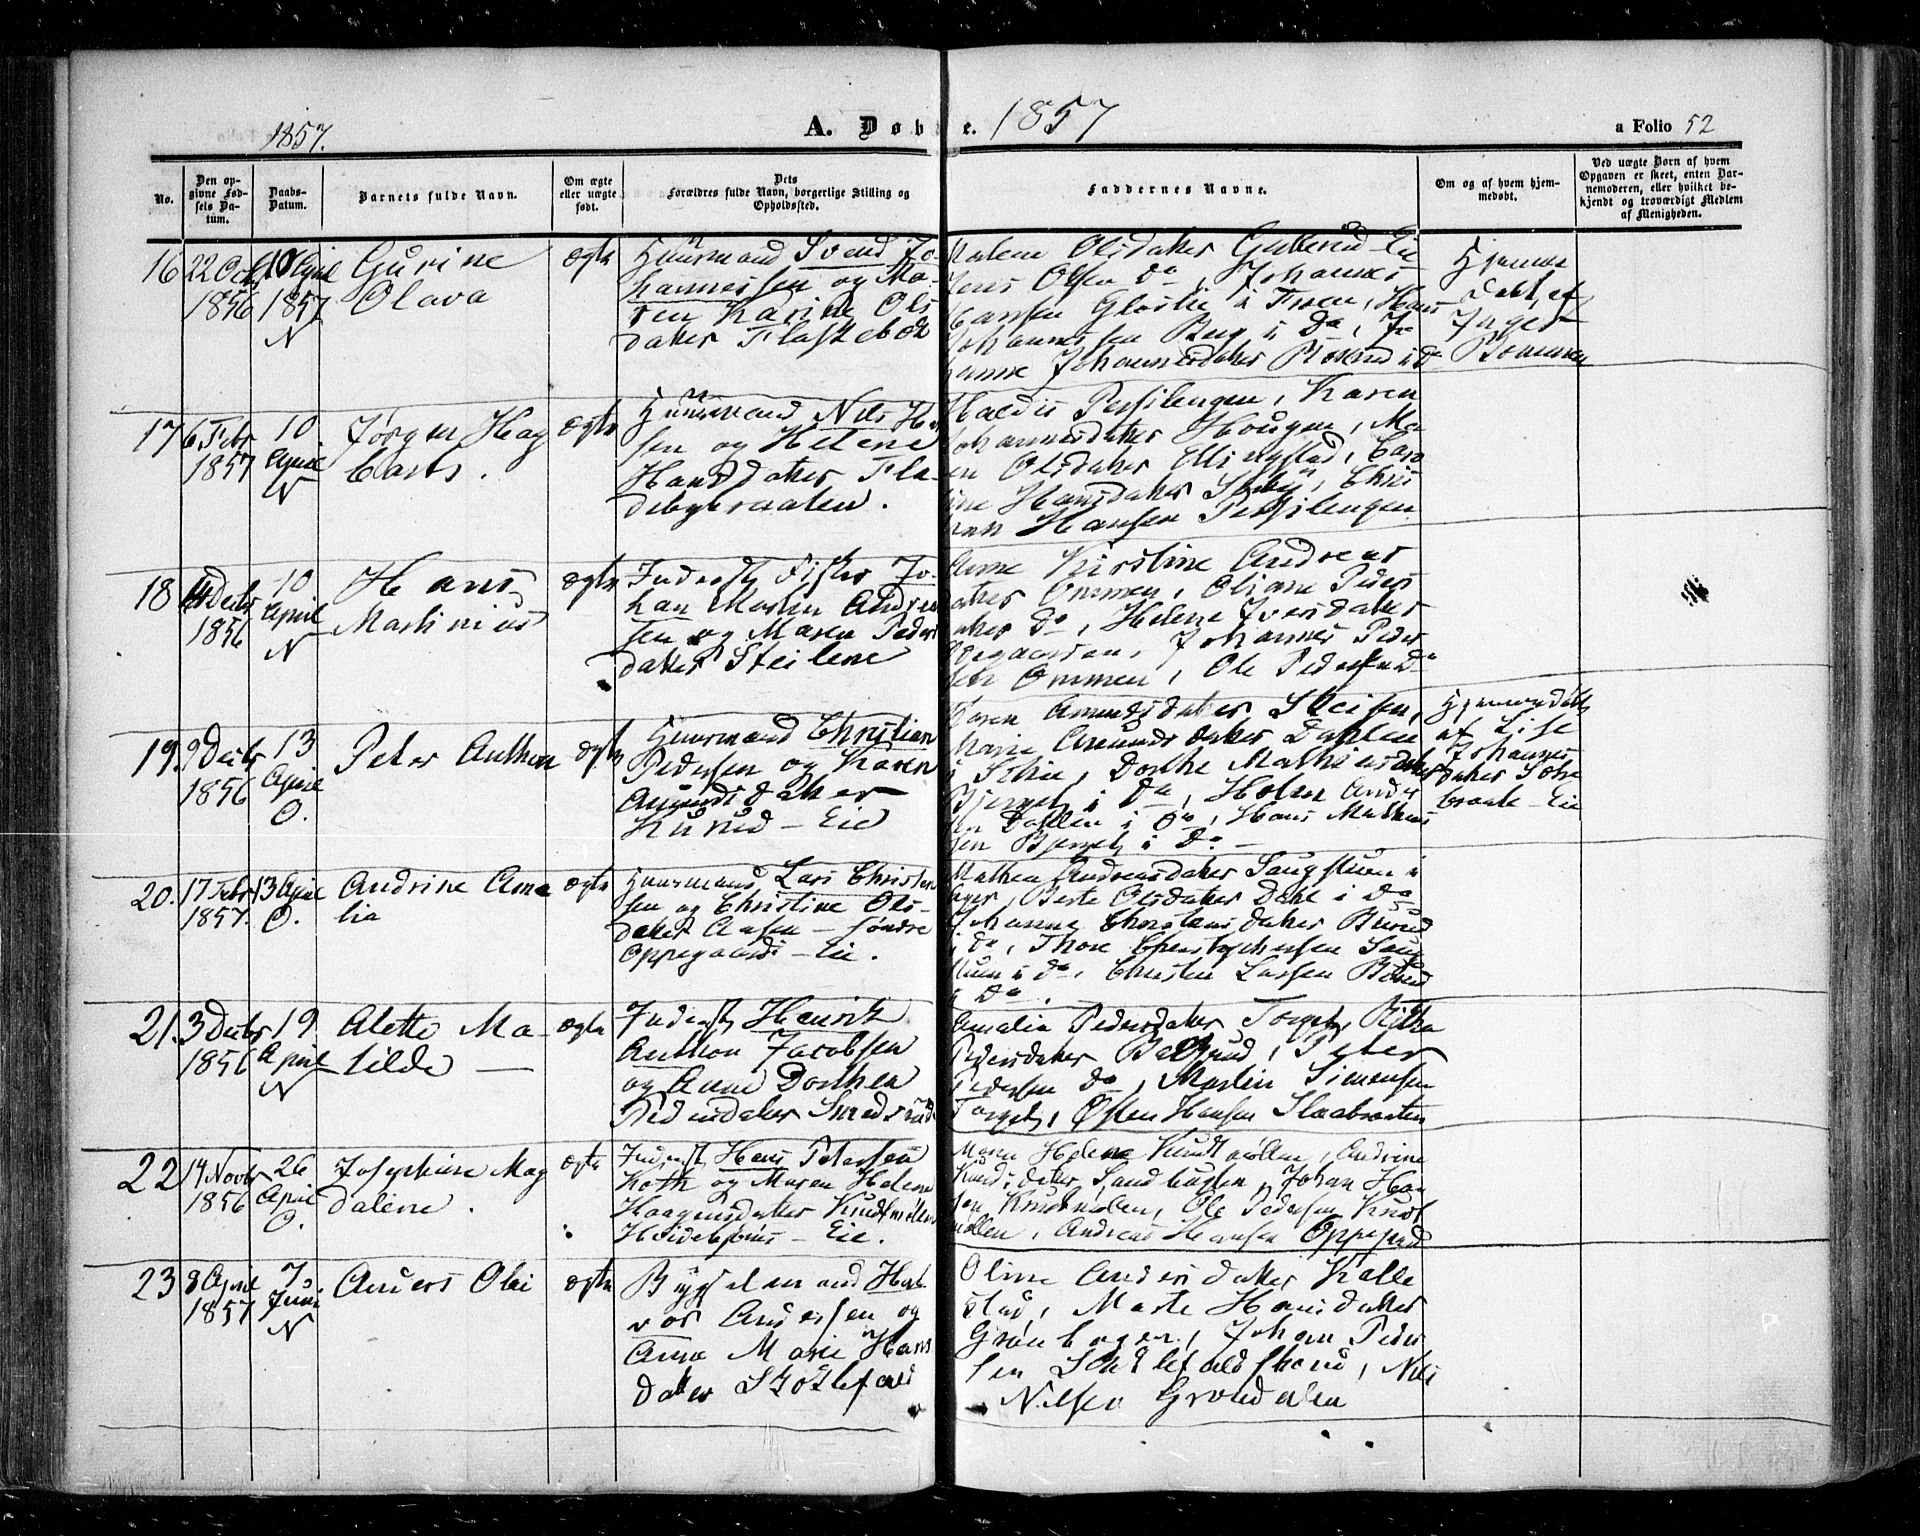 1857.
A. Døbte.
1857
a Folio 52
No.
Den op-
givne Fød-
sels Da-
tum.
Daabs-
Datum.
Barnets fulde Navn.
Om ægte
eller uægte
født.
Dets
Forældres fulde Navn, borgerlige Stilling og
Opholdssted.
Faddernes Navne.
Om og af hvem hjem-
medøbt.
Ved uægte Børn af hvem
Opgaven er skeet, enten Bar-
nemoderen, eller hvilket be-
kjendt og troværdigt Medlem
af Menigheden.
16
22 Octb
1856
10 April
1857
N
Gurine
Olava
ægte
Huusmand Svend Jo-
hannessen og Ma-
ren Karine Ols
datter Flaskebæk
Malene Olsdatter
Jens Olsen do, Johannes
Hansen i Froen, Hans
Johannessen Berg i do, Jo
hanne Johannesdatter i do
Hjemme
døbt af
Inger
17
6 Febr
1857
10
April
N
Jørgen Hag
bart.
ægte
Huusmand Nils
sen og Helene
Hansdatter Fla-
debybraaten.
Persilengen, Karen
Johannesdatter Hougen, Ma
ren Olsdatter Ellingstad, Caro
line Hansdatter, Chris
tian Hansen Persilengen
18
14 Decbr
1856
10
April
N
Hans
Martinius
ægte
Inderst, Fisker Jo-
han Martin Andrea
sen og Maren Peders
datter Steilene
Anne Kirstine Andreas
datter Ommen, Oliane Peders
datter do, Helene Iversdatter
Johannes Peder
sen Ommen, Ole Pedersen do
19.
9 Decbr
1856
13
April
O.
Peter Anthon
ægte
Huusmand Christian
Pedersen og Karen
Amundsdatter
Kurud - Eie
Karen Amundsdatter
Marie Amundsdatter Dahlen
i Schie, Dorthe Mathisdatter
Bjerget i do, Holm Ander
sen Dahlen i do, Hans Mathis
sen Bjerget i do -
Hjemmedøbt
af Lise
Johannes
datter
braate - Eie
20.
17 Febr
1857.
13 April
O.
Andrine Ama
lia
ægte
Huusmand Lars Christen
sen og Christine Ols-
datter Aasen - søndre
Oppegaard - Eie.
Mathea Andreasdatter Saugstuen i
Ager, Berte Olsdatter Dahl i do
Johanne Christensdatter Burud
i do, Thore Christophersen Saug
stuen i do, Christen Larsen Burud
i do.
21.
3 Decbr
1856
19
April
N
Alette Ma-
tilde -
ægte
Inderst Henrik
Anthon Jacobsen
og Anne Dorthea
Pedersdatter
Amalia Pedersdatter Torget,
Pedersdatter, Peter
Pedersen do, Martin Simonsen
Torget, Østen Hansen Slaabraaten
22
14 Novbr
1856
26
April
O.
Josephine Mag
dalene.
ægte
Inderst Hans Petersen
Koth og Maren Helene
Haagensdatter Knudtmøllen
- Eie.
Maren Helene Knudtmøllen, Andrine
Knudsdatter Sandbugten, Johan Han
sen Knudtmøllen, Ole Pedersen Knudt
møllen, Andreas Hansen Oppegaard
23
8 April
1857
7
Juni
N
Anders Olai
ægte
Bygselmand Hal-
vor Andersen og
Anne Marie Hans
datter
Oline Andersdatter Kalle
stad, Marte Hansdatter
Grønbager, Johan Peder
sen, Nils
Nilsen Grøndalen